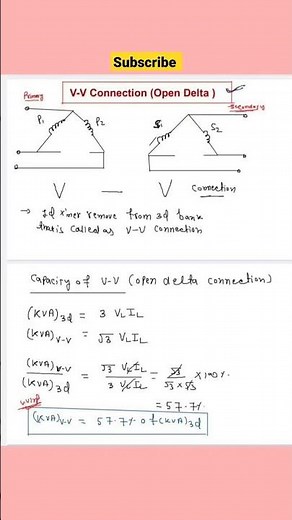 Subscribe
V-V Connection (Open Delta )
Primary
Secondary
P1 P2 S1 S2
V — V Connection
→ 1ϕ x'mer remove from 3ϕ bank
that is called as V-V connection
Capacity of V-V (open delta connection)
(KVA)3ϕ = 3 VL IL
(KVA)V-V = √3 VL IL
(KVA)V-V / (KVA)3ϕ = √3 VL IL / 3 VL IL = √3 / √3 × √3 × 100 %.
= 57.7%
(KVA)V-V = 57.7% of (KVA)3ϕ